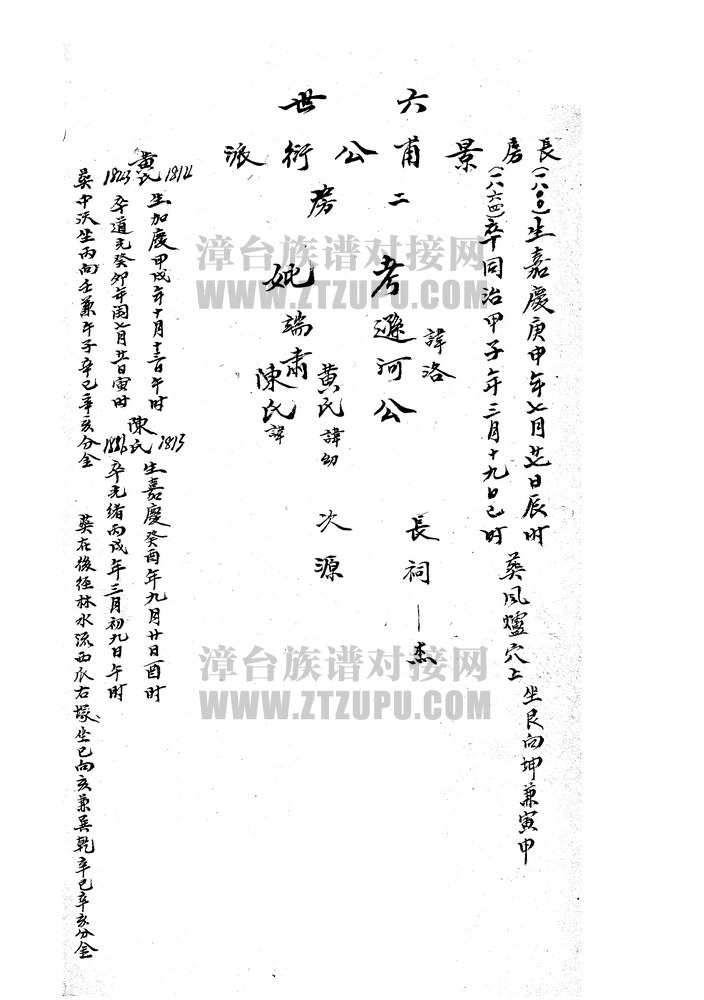 六世
長房景甫公衍派
二房
(一八〇〇)生嘉慶庚申年七月廿七日辰时
(一八六四)卒同治甲子年三月十九日巳时
葬风爐穴上
坐艮向坤兼寅申
諱洛
考遜河公
妣端肅
黄氏諱幼
陳氏諱
長祠一杰
次源
黄氏
1812
生加慶甲戌年十月十三日午时
1843
卒道光癸卯年闰七月廿日寅时
葬中沃坐丙向壬兼午子辛巳辛亥分金
陳氏
1813
生嘉慶癸酉年九月廿日酉时
1886
卒光绪丙戌年三月初九日午时
葬在後徑林水流西爪右塚坐巳向亥兼巽乾辛巳辛亥分金
漳台族谱对接网
WWW.ZTZUPU.COM
漳台族谱对接网
WWW.ZTZUPU.COM